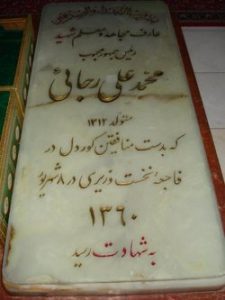 عارف مجاهد و معلم شهید
رئیس جمهور محبوب
محمد علی رجائی
متولد ۱۳۱۲
که بدست منافقین کوردل در
فاجعه نخست وزیری در ۸ شهریور
۱۳۶۰
به شهادت رسید